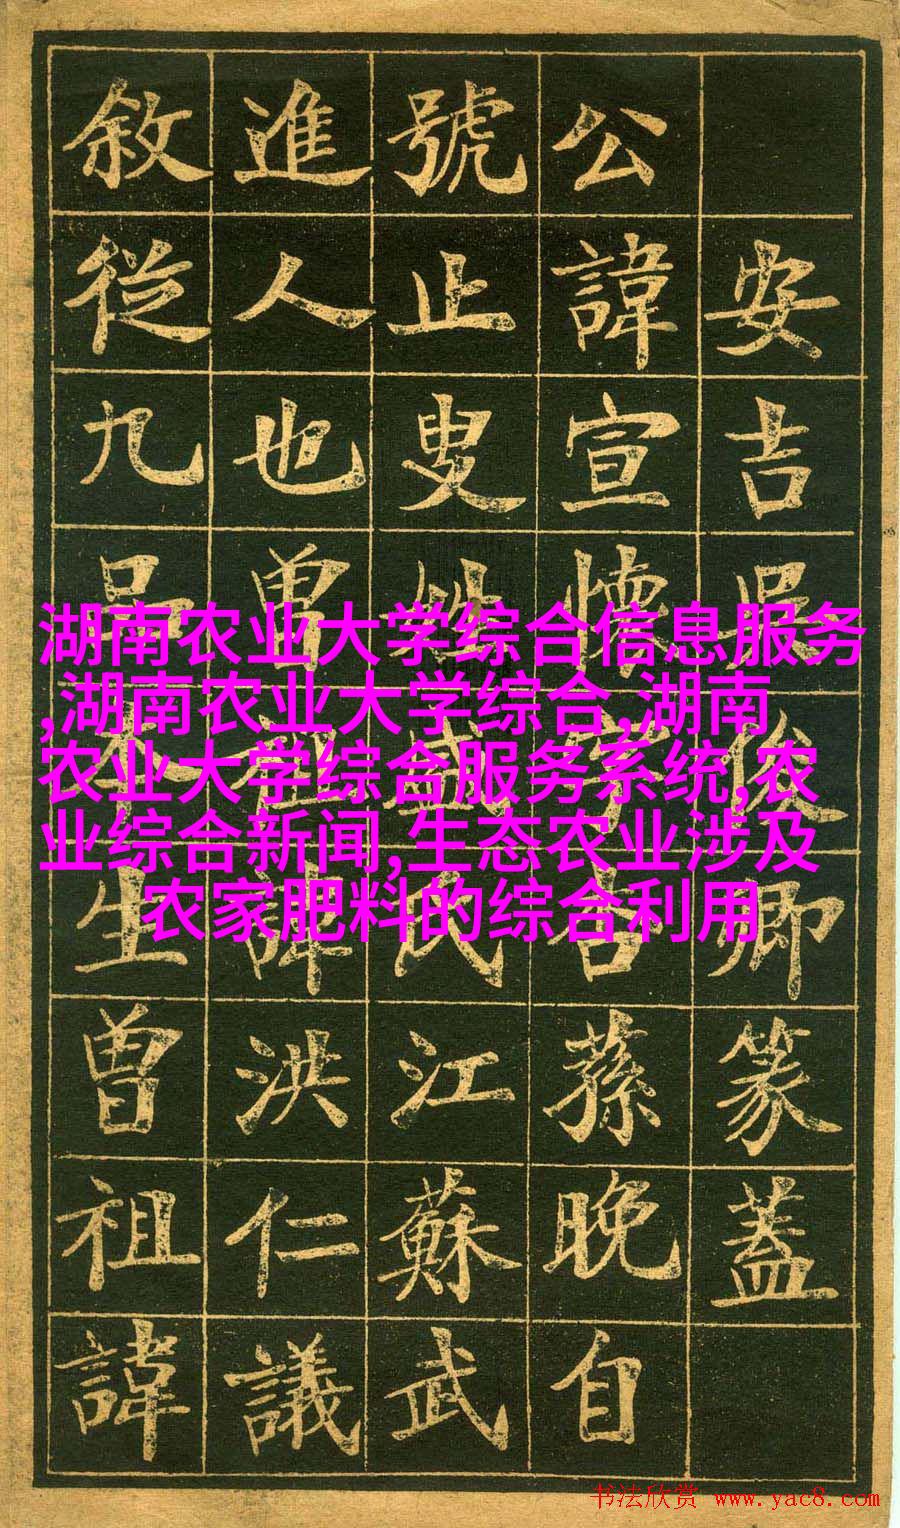 安吉吳俊卿篆蓋
公諱宣懷字杏蓀晚自
號止叟姓盛氏江蘇武
進人也曾祖諱洪仁議
敘從九品本生曾祖諱
湖南农业大学综合信息服务
,湖南农业大学综合,湖南
农业大学综合服务系统,农
业综合新闻,生态农业涉及
农家肥料的综合利用
书法欣赏 www.yac8.com